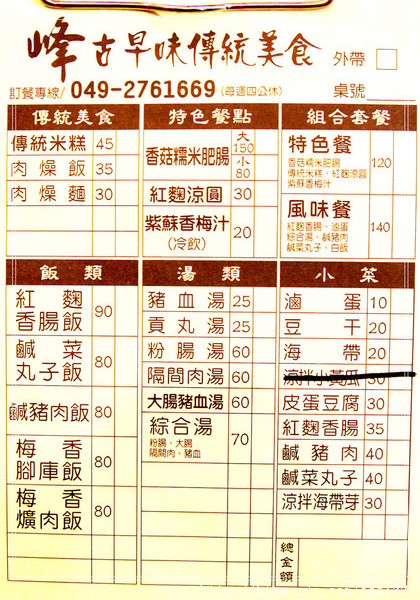 峰古早味傳統美食
外帶
訂餐專線/ 049-2761669 (每週四公休)
桌號
傳統美食
傳統米糕 45
肉燥飯 35
肉燥麵 30
特色餐點
香菇糯米肥腸 大 150 小 80
紅麴涼圓 30
紫蘇香梅汁 (冷飲) 20
組合套餐
特色餐 120
香菇糯米肥腸
傳統米糕、紅麴涼圓
紫蘇香梅汁
風味餐 140
紅麴香腸、滷蛋
綜合湯、鹹豬肉
鹹菜丸子、白飯
飯類
紅麴
香腸飯 90
鹹菜
丸子飯 80
鹹豬肉飯 80
梅香
腳庫飯 80
梅香
爌肉飯 80
湯類
豬血湯 25
貢丸湯 25
粉腸湯 60
隔間肉湯 60
大腸豬血湯 60
綜合湯 70
粉腸、大腸
隔間肉、豬血
小菜
滷蛋 10
豆干 20
海帶 20
涼拌小黃瓜 30
皮蛋豆腐 30
紅麴香腸 35
鹹豬肉 40
鹹菜丸子 40
涼拌海帶芽 30
總金額